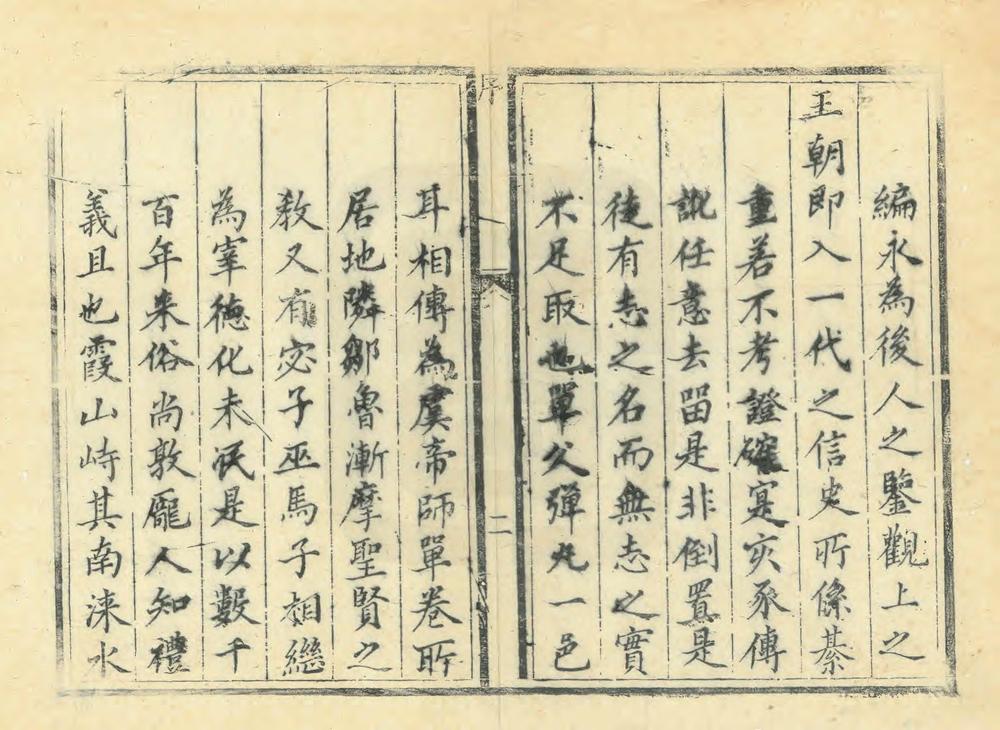 編永為後人之鑒觀上之
王朝即入一代之信史所係綦
重若不考證確寔亥豕傳
訛任意去留是非倒置是
徒有志之名而無志之實
不足取也單父彈丸一邑
序
二
耳相傳為虞帝師單卷所
居地隣鄒魯漸摩聖賢之
教又有宓子巫馬子相繼
為宰德化未泯是以數千
百年来俗尚敦龐人知禮
義且也霞山峙其南涞水